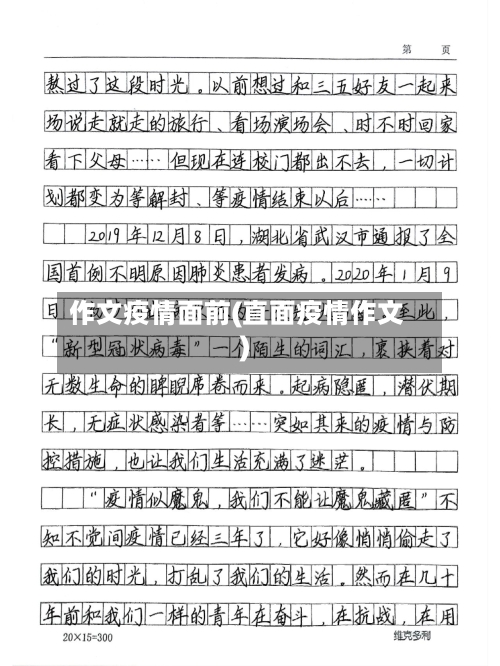 第 页
熬过了这段时光。以前想过和三五好友一起来
场说走就走的旅行、看场演场会、时不时回家
看下父母……但现在连校门都出不去，一切计
划都变为等解封、等疫情结束以后……
2019年12月8日，湖北省武汉市通报了全
国首例不明原因肺炎患者发病。2020年1月9
日
至此，
作文疫情面前(直面疫情作文
)
“新型冠状病毒”一个陌生的词汇，裹挟着对
无数生命的睥睨席卷而来。起病隐匿，潜伏期
长，无症状感染者等……突如其来的疫情与防
控措施，也让我们生活充满了迷茫。
“疫情似魔鬼，我们不能让魔鬼藏匿”不
知不觉间疫情已经三年了，它好像悄悄偷走了
我们的时光，打乱了我们的生活。然而在几十
年前和我们一样的青年在奋斗，在抗战，在用
20×15=300
维克多利